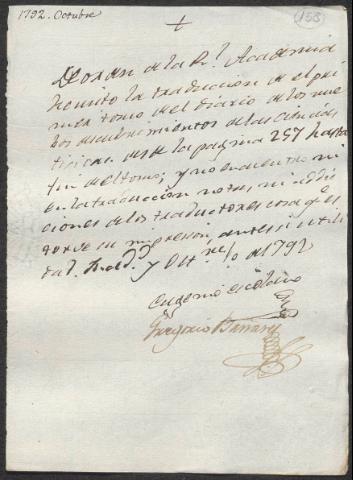 1792. Octubre
158
+
De orden de la Rl. Academia
he visto la traduccion de el pri-
mer tomo del diario de los nue
bos descubrimientos de las Ciencias
fisicas desde la pagina 257 hasta
fin del tomo; y no encuentro ni
en la traduccion notas, ni addi
ciones de los traductores cosa q.e es
torve su impresion, antes si utili
dad. y Oct.re de 1792
Eugenio Escolano
Gregorio Barrary